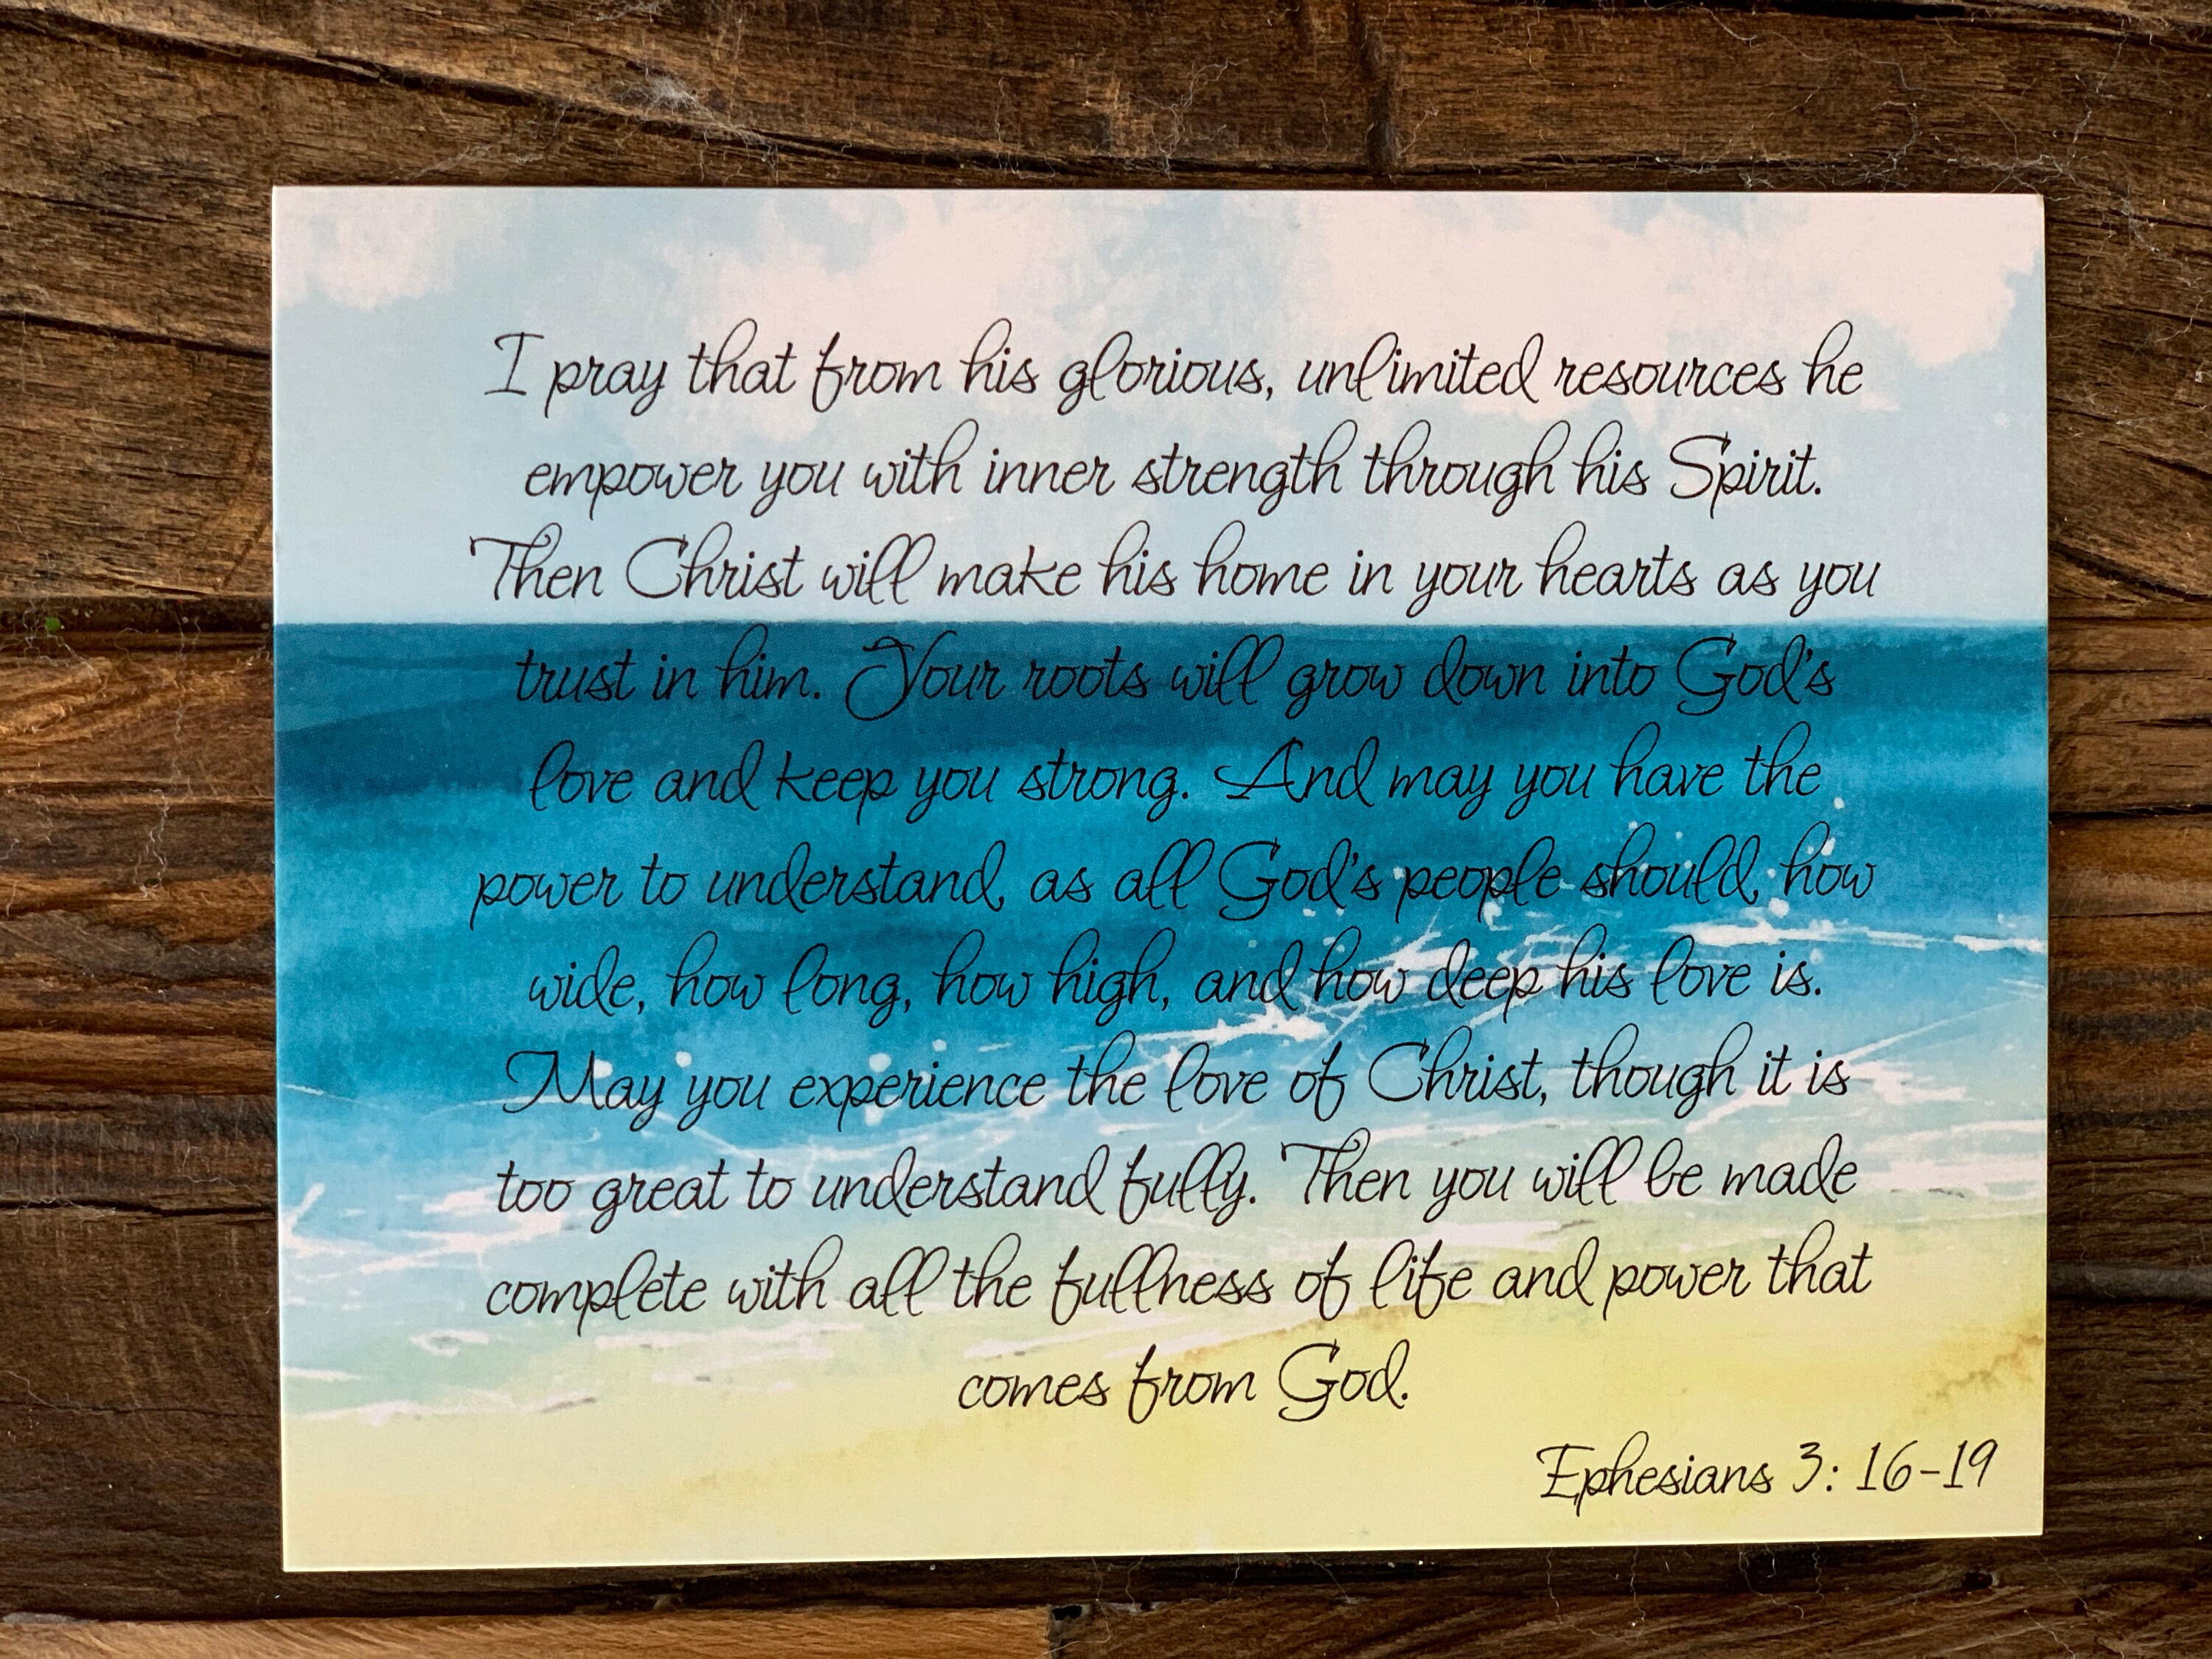 I pray that from his glorious, unlimited resources he
empower you with inner strength through his Spirit.
Then Christ will make his home in your hearts as you
trust in him. Your roots will grow down into God's
love and keep you strong. And may you have the
power to understand, as all God's people should, how
wide, how long, how high, and how deep his love is.
May you experience the love of Christ, though it is
too great to understand fully. Then you will be made
complete with all the fullness of life and power that
comes from God.
Ephesians 3: 16-19